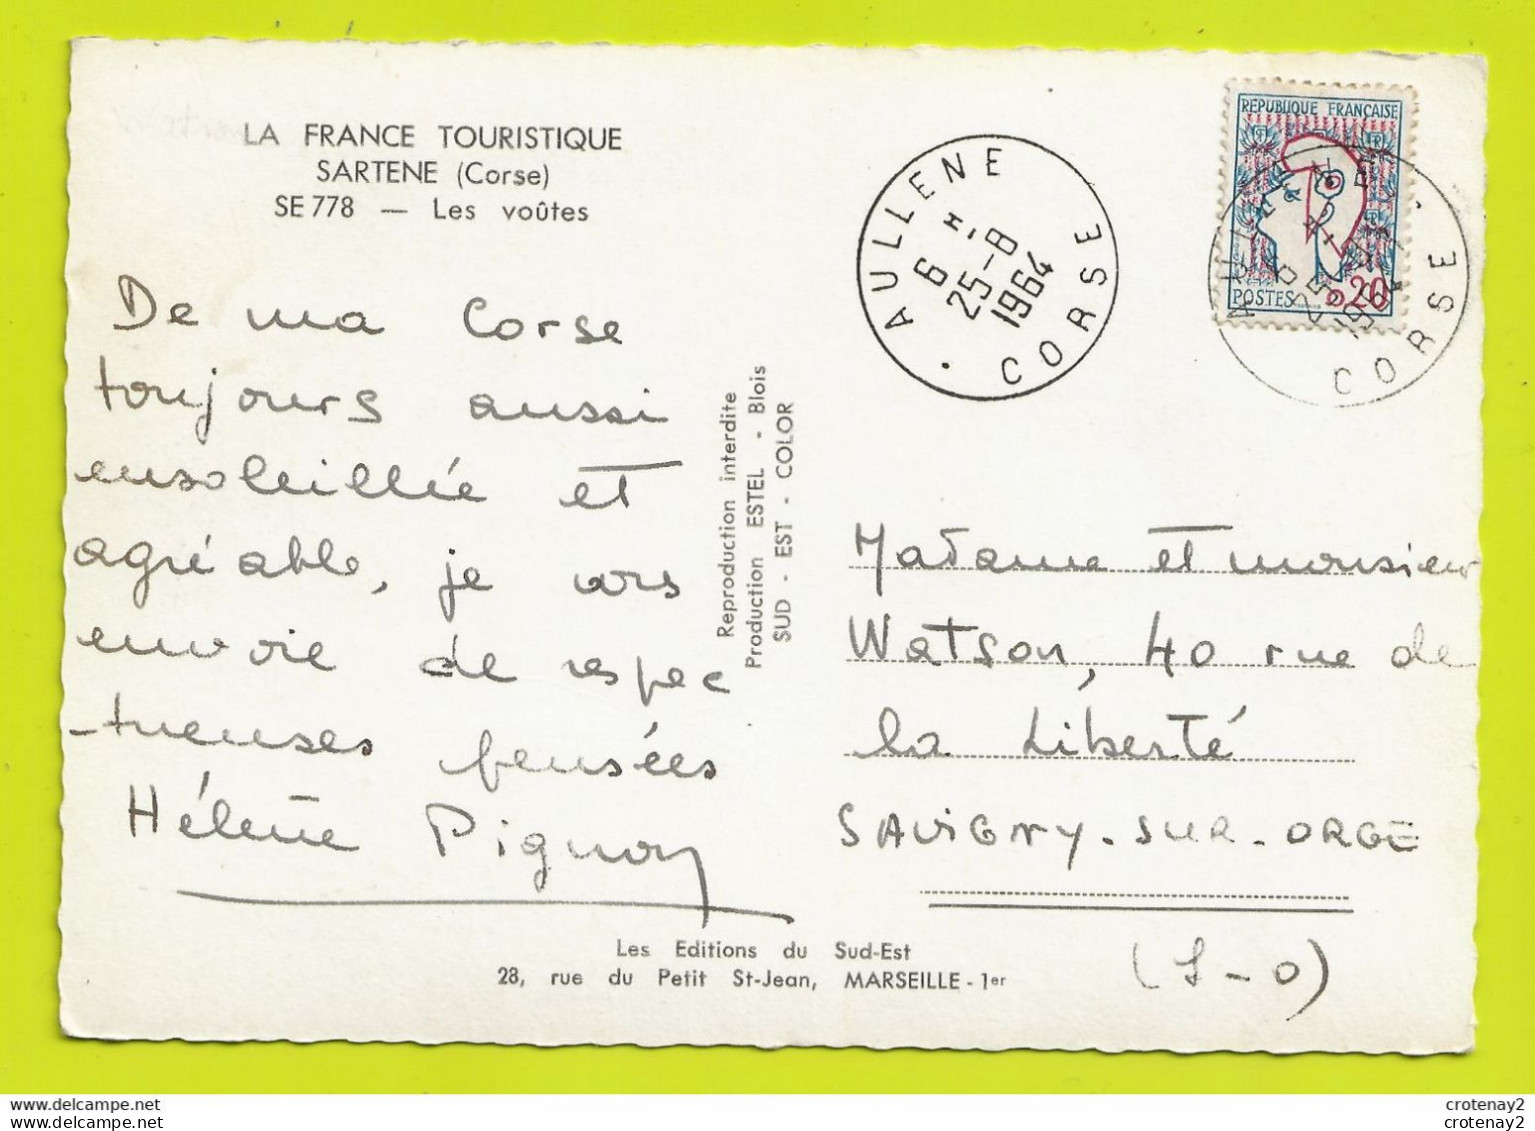 LA FRANCE TOURISTIQUE
SARTENE (Corse)
SE 778 — Les voûtes
De ma Corse
toujours aussi
ensoleillée et
agréable, je vous
envoie de respec
-tueuses pensées
Hélène Pignon
Reproduction interdite
Production ESTEL - Blois
SUD - EST - COLOR
AULLENE
6 H
25-8
1964
CORSE
REPUBLIQUE FRANÇAISE
POSTES 0,20
AULLENE
25-8
1964
CORSE
Madame et monsieur
Watson, 40 rue de
la Liberté
SAVIGNY-SUR-ORGE
(S-O)
Les Editions du Sud-Est
28, rue du Petit St-Jean, MARSEILLE - 1er
crotenay2
crotenay2
crotenay2
crotenay2